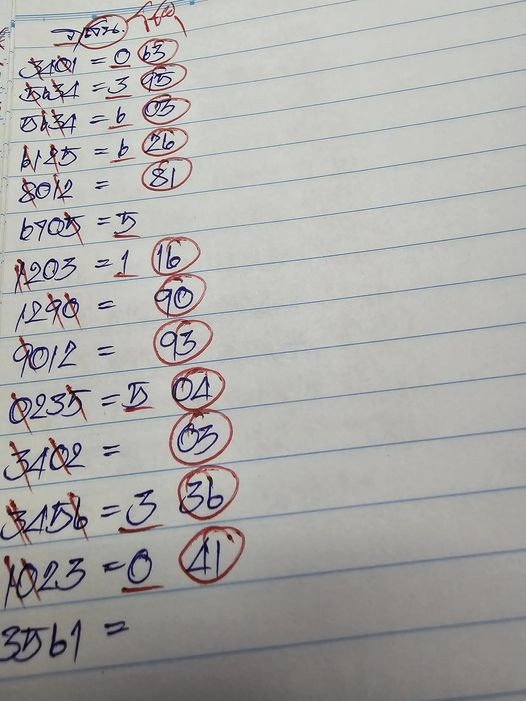 3401 = 0 63
5634 = 3 15
5634 = 6 03
6125 = 6 26
8012 = 81
6705 = 5
1203 = 1 16
1290 = 90
9012 = 93
0235 = 5 04
3402 = 03
3456 = 3 36
1023 = 0 41
3561 =